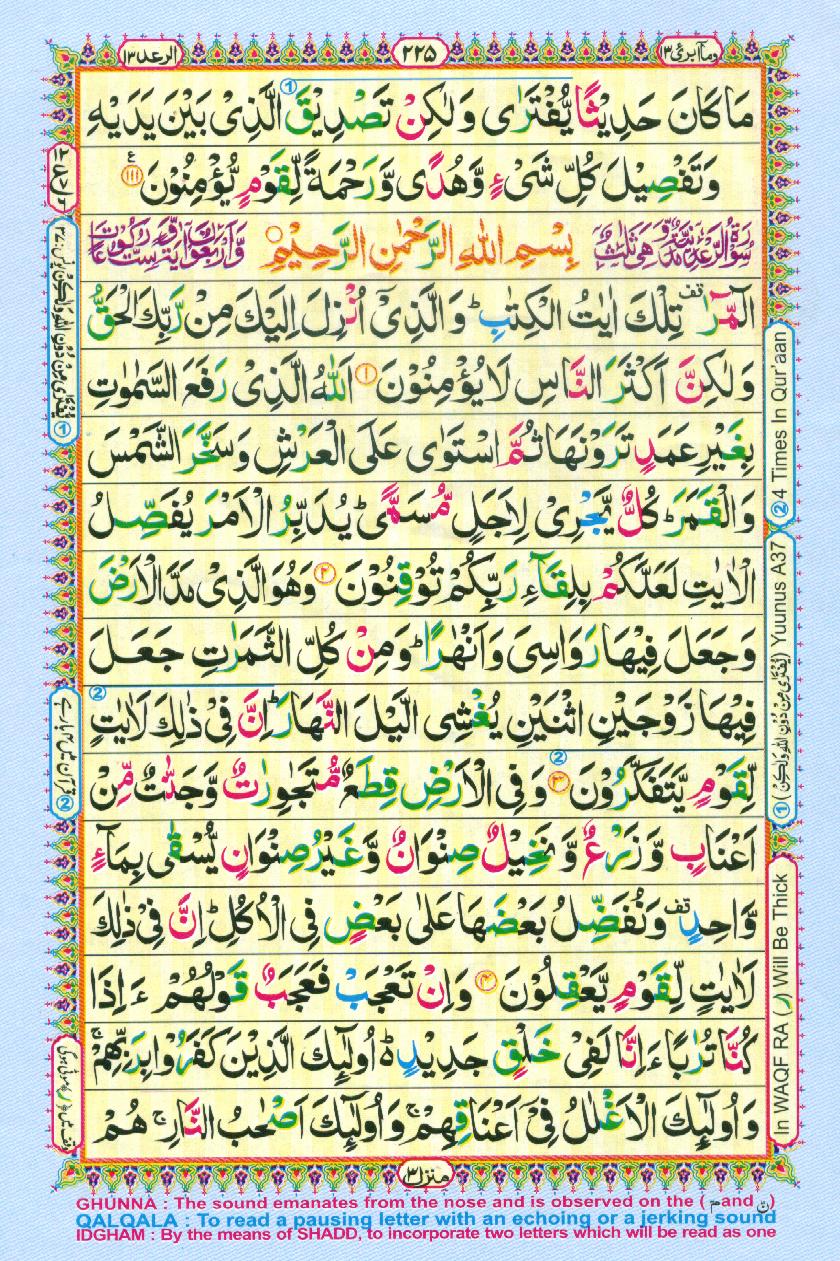 وما ابرئ ۱۳
۲۲۵
الرعد ۱۳
مَا كَانَ حَدِيْثًا يُّفْتَرٰى وَ لٰكِنْ تَصْدِيْقَ الَّذِىْ بَيْنَ يَدَيْهِ
وَتَفْصِيْلَ كُلِّ شَىْءٍ وَّهُدًى وَّرَحْمَةً لِّقَوْمٍ يُّؤْمِنُوْنَ ۱۱۱
بِسْمِ اللّٰهِ الرَّحْمٰنِ الرَّحِيْمِ
الٓمّٓرٰ تف تِلْكَ اٰيٰتُ الْكِتٰبِ ؕ وَ الَّذِىْۤ اُنْزِلَ اِلَيْكَ مِنْ رَّبِّكَ الْحَقُّ
وَ لٰكِنَّ اَكْثَرَ النَّاسِ لَا يُؤْمِنُوْنَ ۱ اَللّٰهُ الَّذِىْ رَفَعَ السَّمٰوٰتِ
بِغَيْرِ عَمَدٍ تَرَوْنَهَا ثُمَّ اسْتَوٰى عَلَى الْعَرْشِ وَ سَخَّرَ الشَّمْسَ
وَالْقَمَرَ ؕ كُلٌّ يَّجْرِىْ لِاَجَلٍ مُّسَمًّى ؕ يُدَبِّرُ الْاَمْرَ يُفَصِّلُ
الْاٰيٰتِ لَعَلَّكُمْ بِلِقَآءِ رَبِّكُمْ تُوْقِنُوْنَ ۲ وَهُوَ الَّذِىْ مَدَّ الْاَرْضَ
وَجَعَلَ فِيْهَا رَوَاسِىَ وَ اَنْهٰرًا ؕ وَمِنْ كُلِّ الثَّمَرٰتِ جَعَلَ
فِيْهَا زَوْجَيْنِ اثْنَيْنِ يُغْشِى الَّيْلَ النَّهَارَ ؕ اِنَّ فِىْ ذٰلِكَ لَاٰيٰتٍ
لِّقَوْمٍ يَّتَفَكَّرُوْنَ ۳ وَفِى الْاَرْضِ قِطَعٌ مُّتَجٰوِرٰتٌ وَّجَنّٰتٌ مِّنْ
اَعْنَابٍ وَّ زَرْعٌ وَّ نَخِيْلٌ صِنْوَانٌ وَّغَيْرُ صِنْوَانٍ يُّسْقٰى بِمَآءٍ
وَّاحِدٍ تف وَنُفَضِّلُ بَعْضَهَا عَلٰى بَعْضٍ فِى الْاُكُلِ ؕ اِنَّ فِىْ ذٰلِكَ
لَاٰيٰتٍ لِّقَوْمٍ يَّعْقِلُوْنَ ۴ وَاِنْ تَعْجَبْ فَعَجَبٌ قَوْلُهُمْ ءَاِذَا
كُنَّا تُرٰبًا ءَاِنَّا لَفِىْ خَلْقٍ جَدِيْدٍ ؕ اُولٰٓئِكَ الَّذِيْنَ كَفَرُوْا بِرَبِّهِمْ ۚ
وَ اُولٰٓئِكَ الْاَغْلٰلُ فِىْۤ اَعْنَاقِهِمْ ۚ وَ اُولٰٓئِكَ اَصْحٰبُ النَّارِ ۚ هُمْ
② 4 Times In Qur'aan
① (يُفْتَرٰى مِنْ دُوْنِ اللّٰهِ وَلٰكِنْ) Yuunus A37
In WAQF RA (ر) Will Be Thick
منزل ۳
GHUNNA : The sound emanates from the nose and is observed on the (م and نّ)
QALQALA : To read a pausing letter with an echoing or a jerking sound
IDGHAM : By the means of SHADD, to incorporate two letters which will be read as one